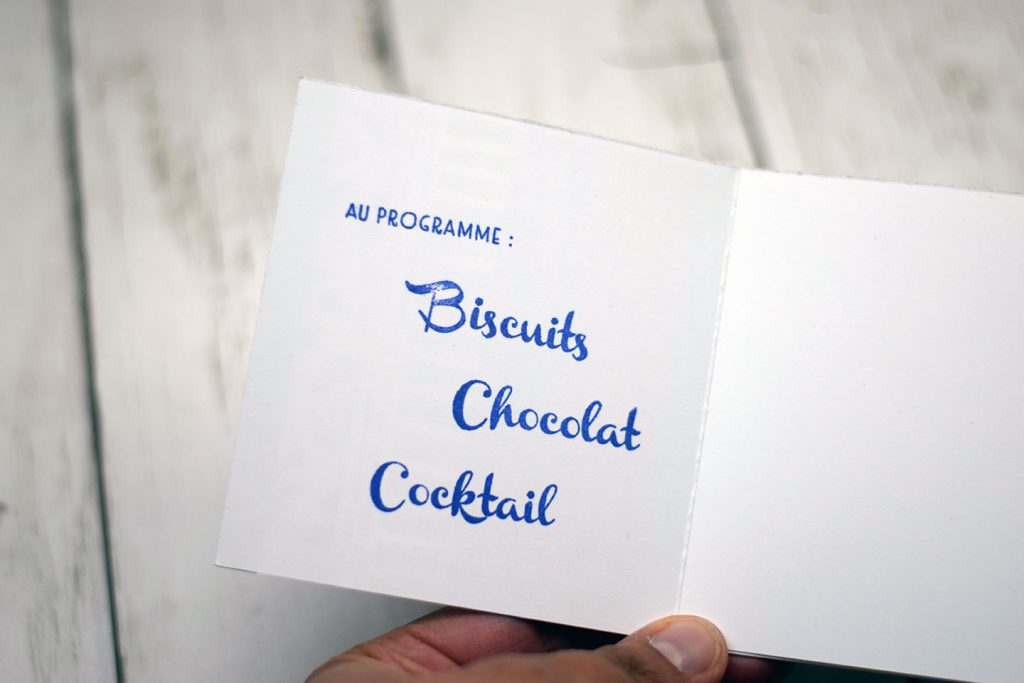 AU PROGRAMME :
Biscuits
Chocolat
Cocktail